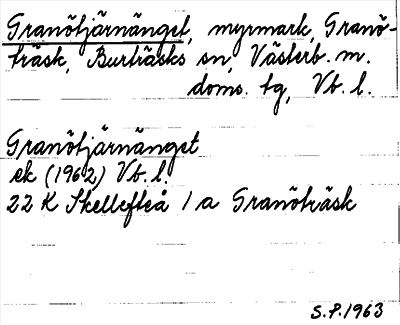 Granötjärnänget, myrmark, Granö-
träsk, Burträsks sn, Västerb. m.
doms. tg, Vb. l.
Granötjärnänget
ek (1962) Vb. l.
22 K Skellefteå 1 a Granöträsk
S.P. 1963